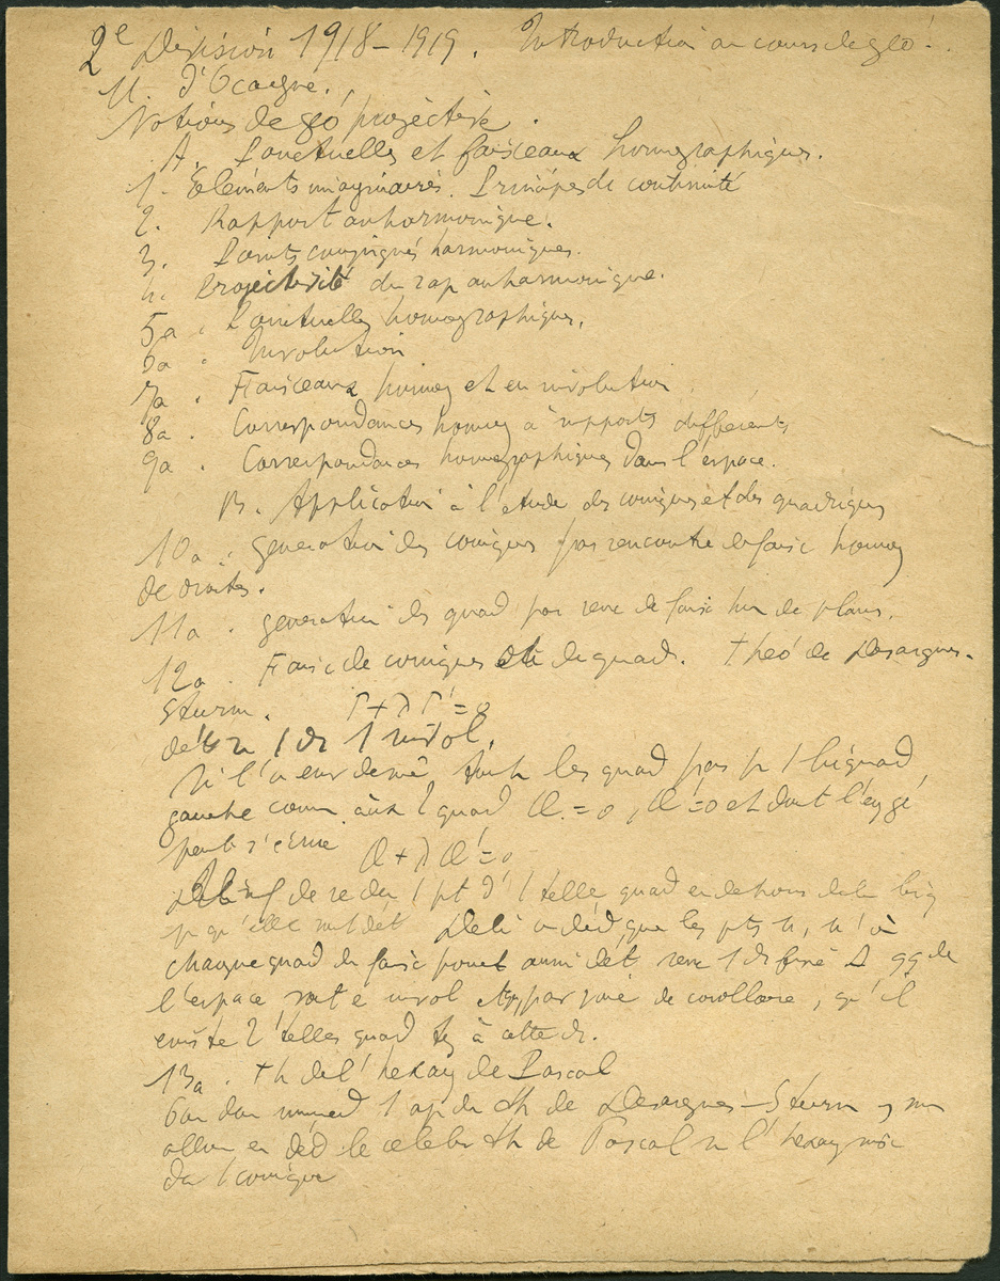 2e Division 1918-1919. Introduction au cours de géo.
M. d'Ocagne.
Notions de géo projective.
A. Ponctuelles et faisceaux homographiques.
1. Eléments imaginaires. Principes de continuité
2. Rapport anharmonique.
3. Points conjugués harmoniques.
4. Projectivité du rap anharmonique.
5a. Ponctuelles homographiques.
6a. Involution
7a. Faisceaux homog et en involution
8a. Correspondances homog à supports différents
9a. Correspondances homographiques dans l'espace.
B. Application à l'étude des coniques et des quadriques
10a. generation des coniques par rencontre de faisc homog
de droites.
11a. generation des quad par renc de faisc hom de plans.
12a. Faisc de coniques et de quad. théo de Desargues-
Sturm. Γ + λ Γ' = 0
dét sr 1 dr 1 invol.
les quad pas pr 1 biquad
gauche comm aux 2 quad Q = 0, Q' = 0 et dont l'eq gé
peut s'écrire Q + λ Q' = 0
de 1 pt d' 1 telle quad en dehors de la biq
pr qu'elle soit det que les pts u, u' où
chaque quad du faisc ponct ainsi dét sur 1 dr qq de
l'espace sont en invol et par voie de corollaire, qu'il
existe 2 telles quad tg à cette dr.
13a. th de l'hexag de Pascal
1 ap du th de Desargues-Sturm, nous
allons en déd le célèbre th de Pascal sr l'hexag insc
ds 1 conique